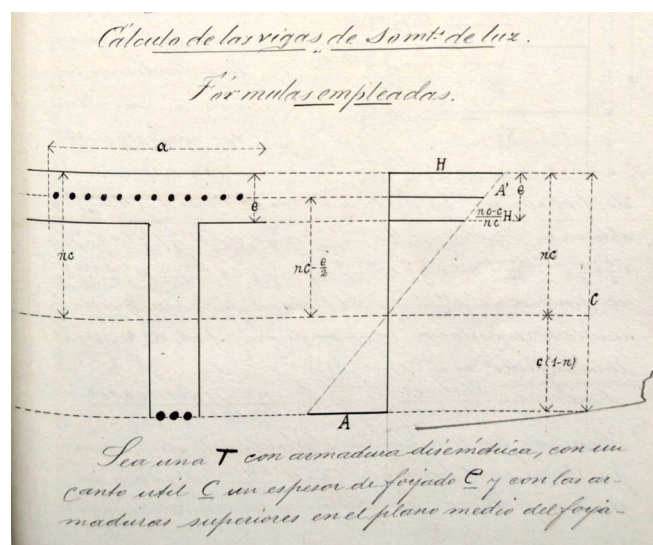 Cálculo de las vigas de 30 mts. de luz.
Fórmulas empleadas.
a
H
e
A'
e
nc-e/nc H
nc
nc-e/2
nc
C
c(1-n)
A
Sea una T con armadura disimétrica, con un
canto util C un espesor de forjado e y con las ar-
maduras superiores en el plano medio del forja-